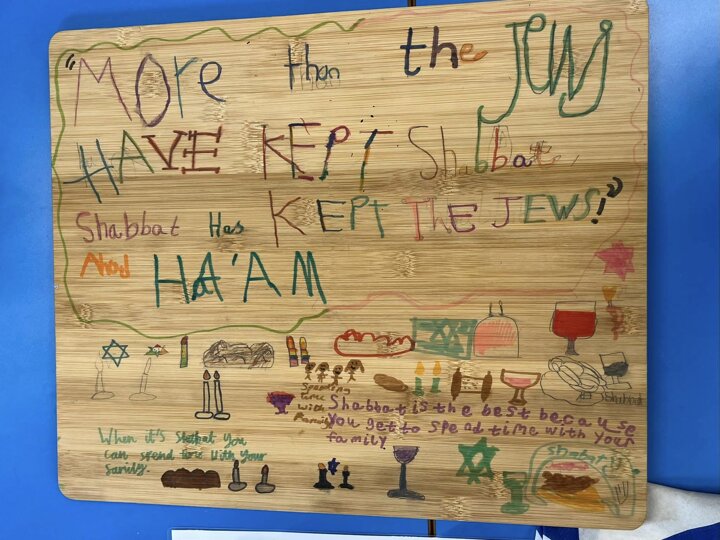 "More than the Jews
HAVE KEPT Shabbat,
Shabbat Has KEPT THE JEWS!"
Ahad HA'AM
Spending
time
with
Family
Shabbat is the best because
You get to spend time with your
family
When it's Shabbat You
can spend time with Your
family.
Shabbat
Shabat